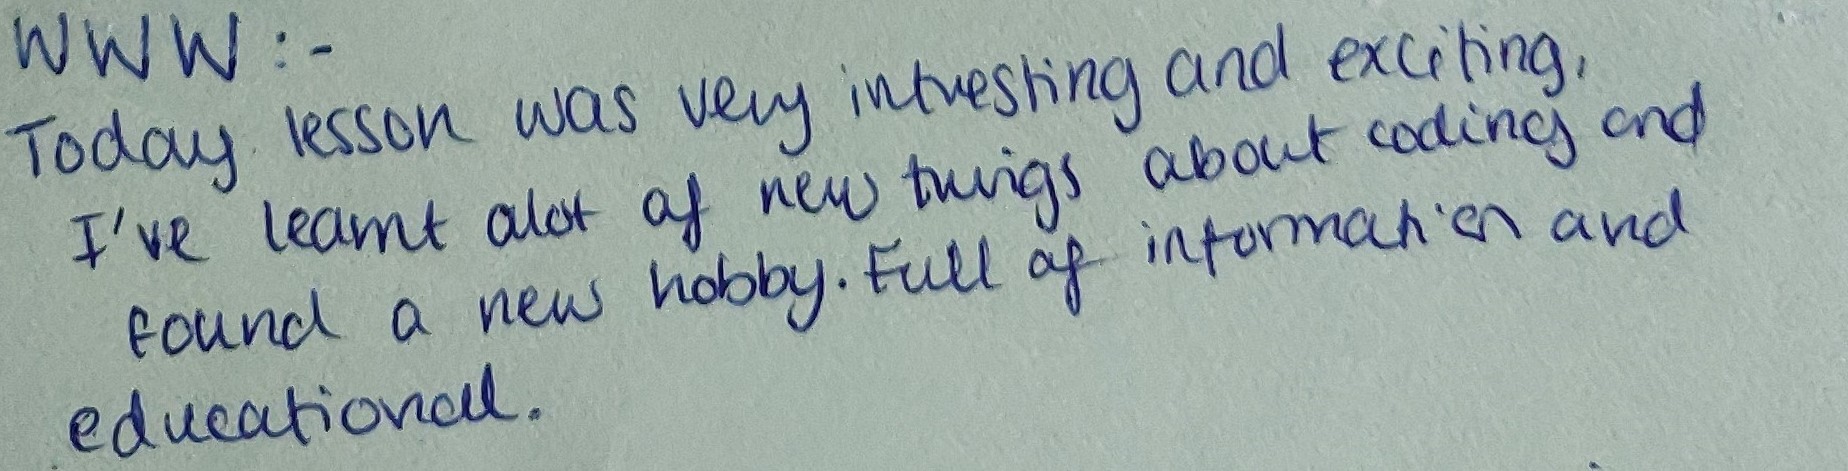 WWW :-
Today lesson was very intresting and exciting.
I've learnt alot of new things about coding and
found a new hobby. Full of information and
educational.